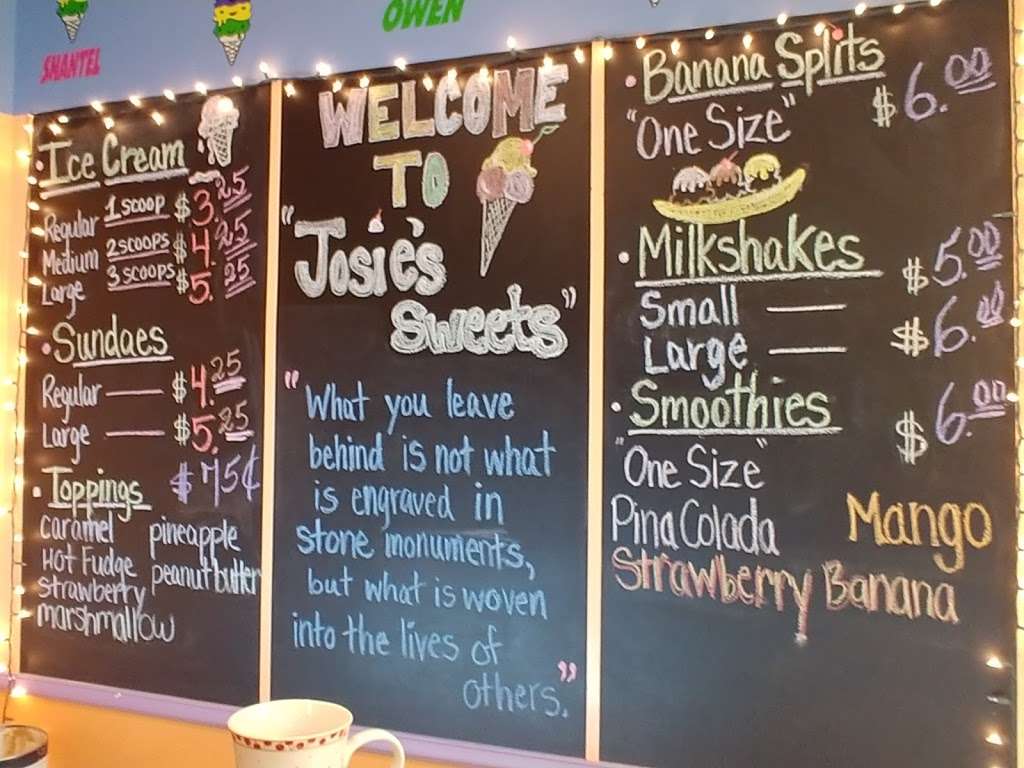 SHANTEL
OWEN
• Ice Cream
Regular 1 SCOOP $3.25
Medium 2 SCOOPS $4.25
Large 3 SCOOPS $5.25
• Sundaes
Regular — $4.25
Large — $5.25
• Toppings $ 75¢
caramel pineapple
HOT FUDGE peanutbutter
strawberry
marshmallow
WELCOME
TO
"Josie's
Sweets"
"What you leave
behind is not what
is engraved in
stone monuments,
but what is woven
into the lives of
others."
• Banana Splits $6.00
"One Size"
• Milkshakes
Small — $5.00
Large — $6.00
• Smoothies $6.00
"One Size"
Pina Colada Mango
Strawberry Banana